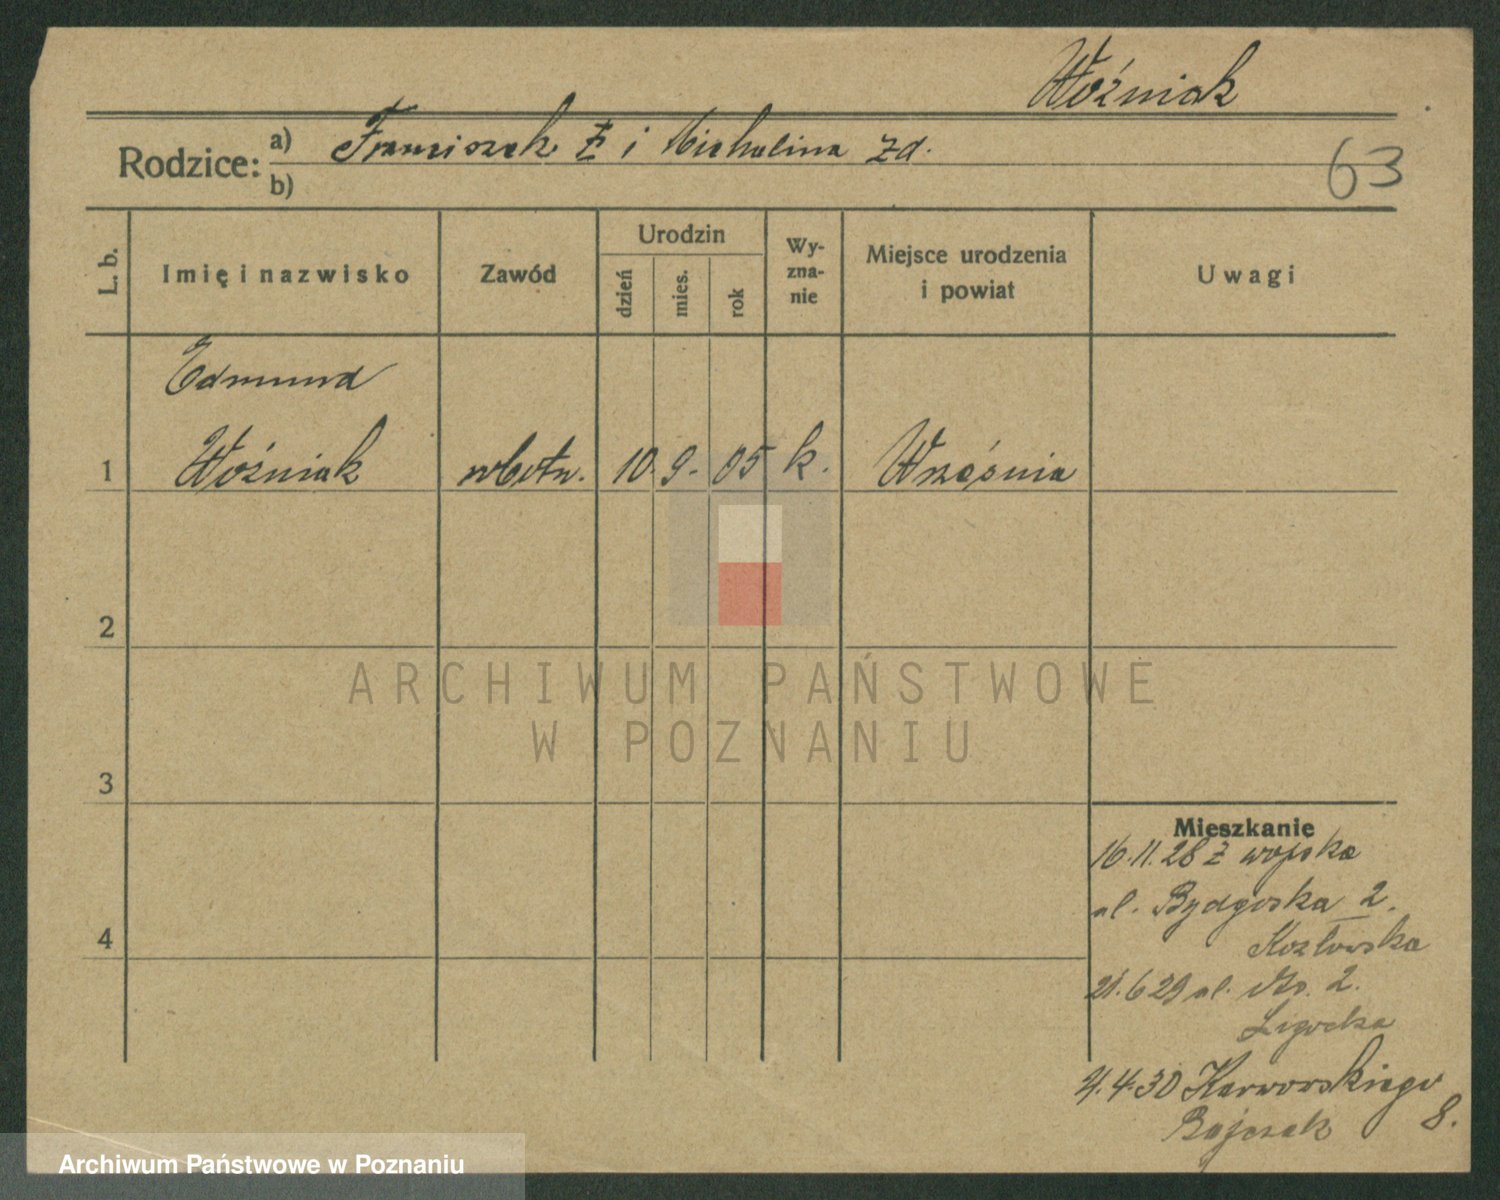 Woźniak
Rodzice: a) Franciszek Ł i Michalina zd.
b)
63
L. b.
Imię i nazwisko
Zawód
Urodzin
dzień
mies.
rok
Wy-
zna-
nie
Miejsce urodzenia
i powiat
Uwagi
Edmund
1 Woźniak robotn. 10. 9. 05 k. Września
2
3
4
ARCHIWUM PAŃSTWOWE
W POZNANIU
Mieszkanie
16.11.28 z wojska
ul. Bydgoska 2.
Kozłowska
21.6 29 ul. 2.
Ligocka
4.4.30 Karwowskiego
8.
Archiwum Państwowe w Poznaniu